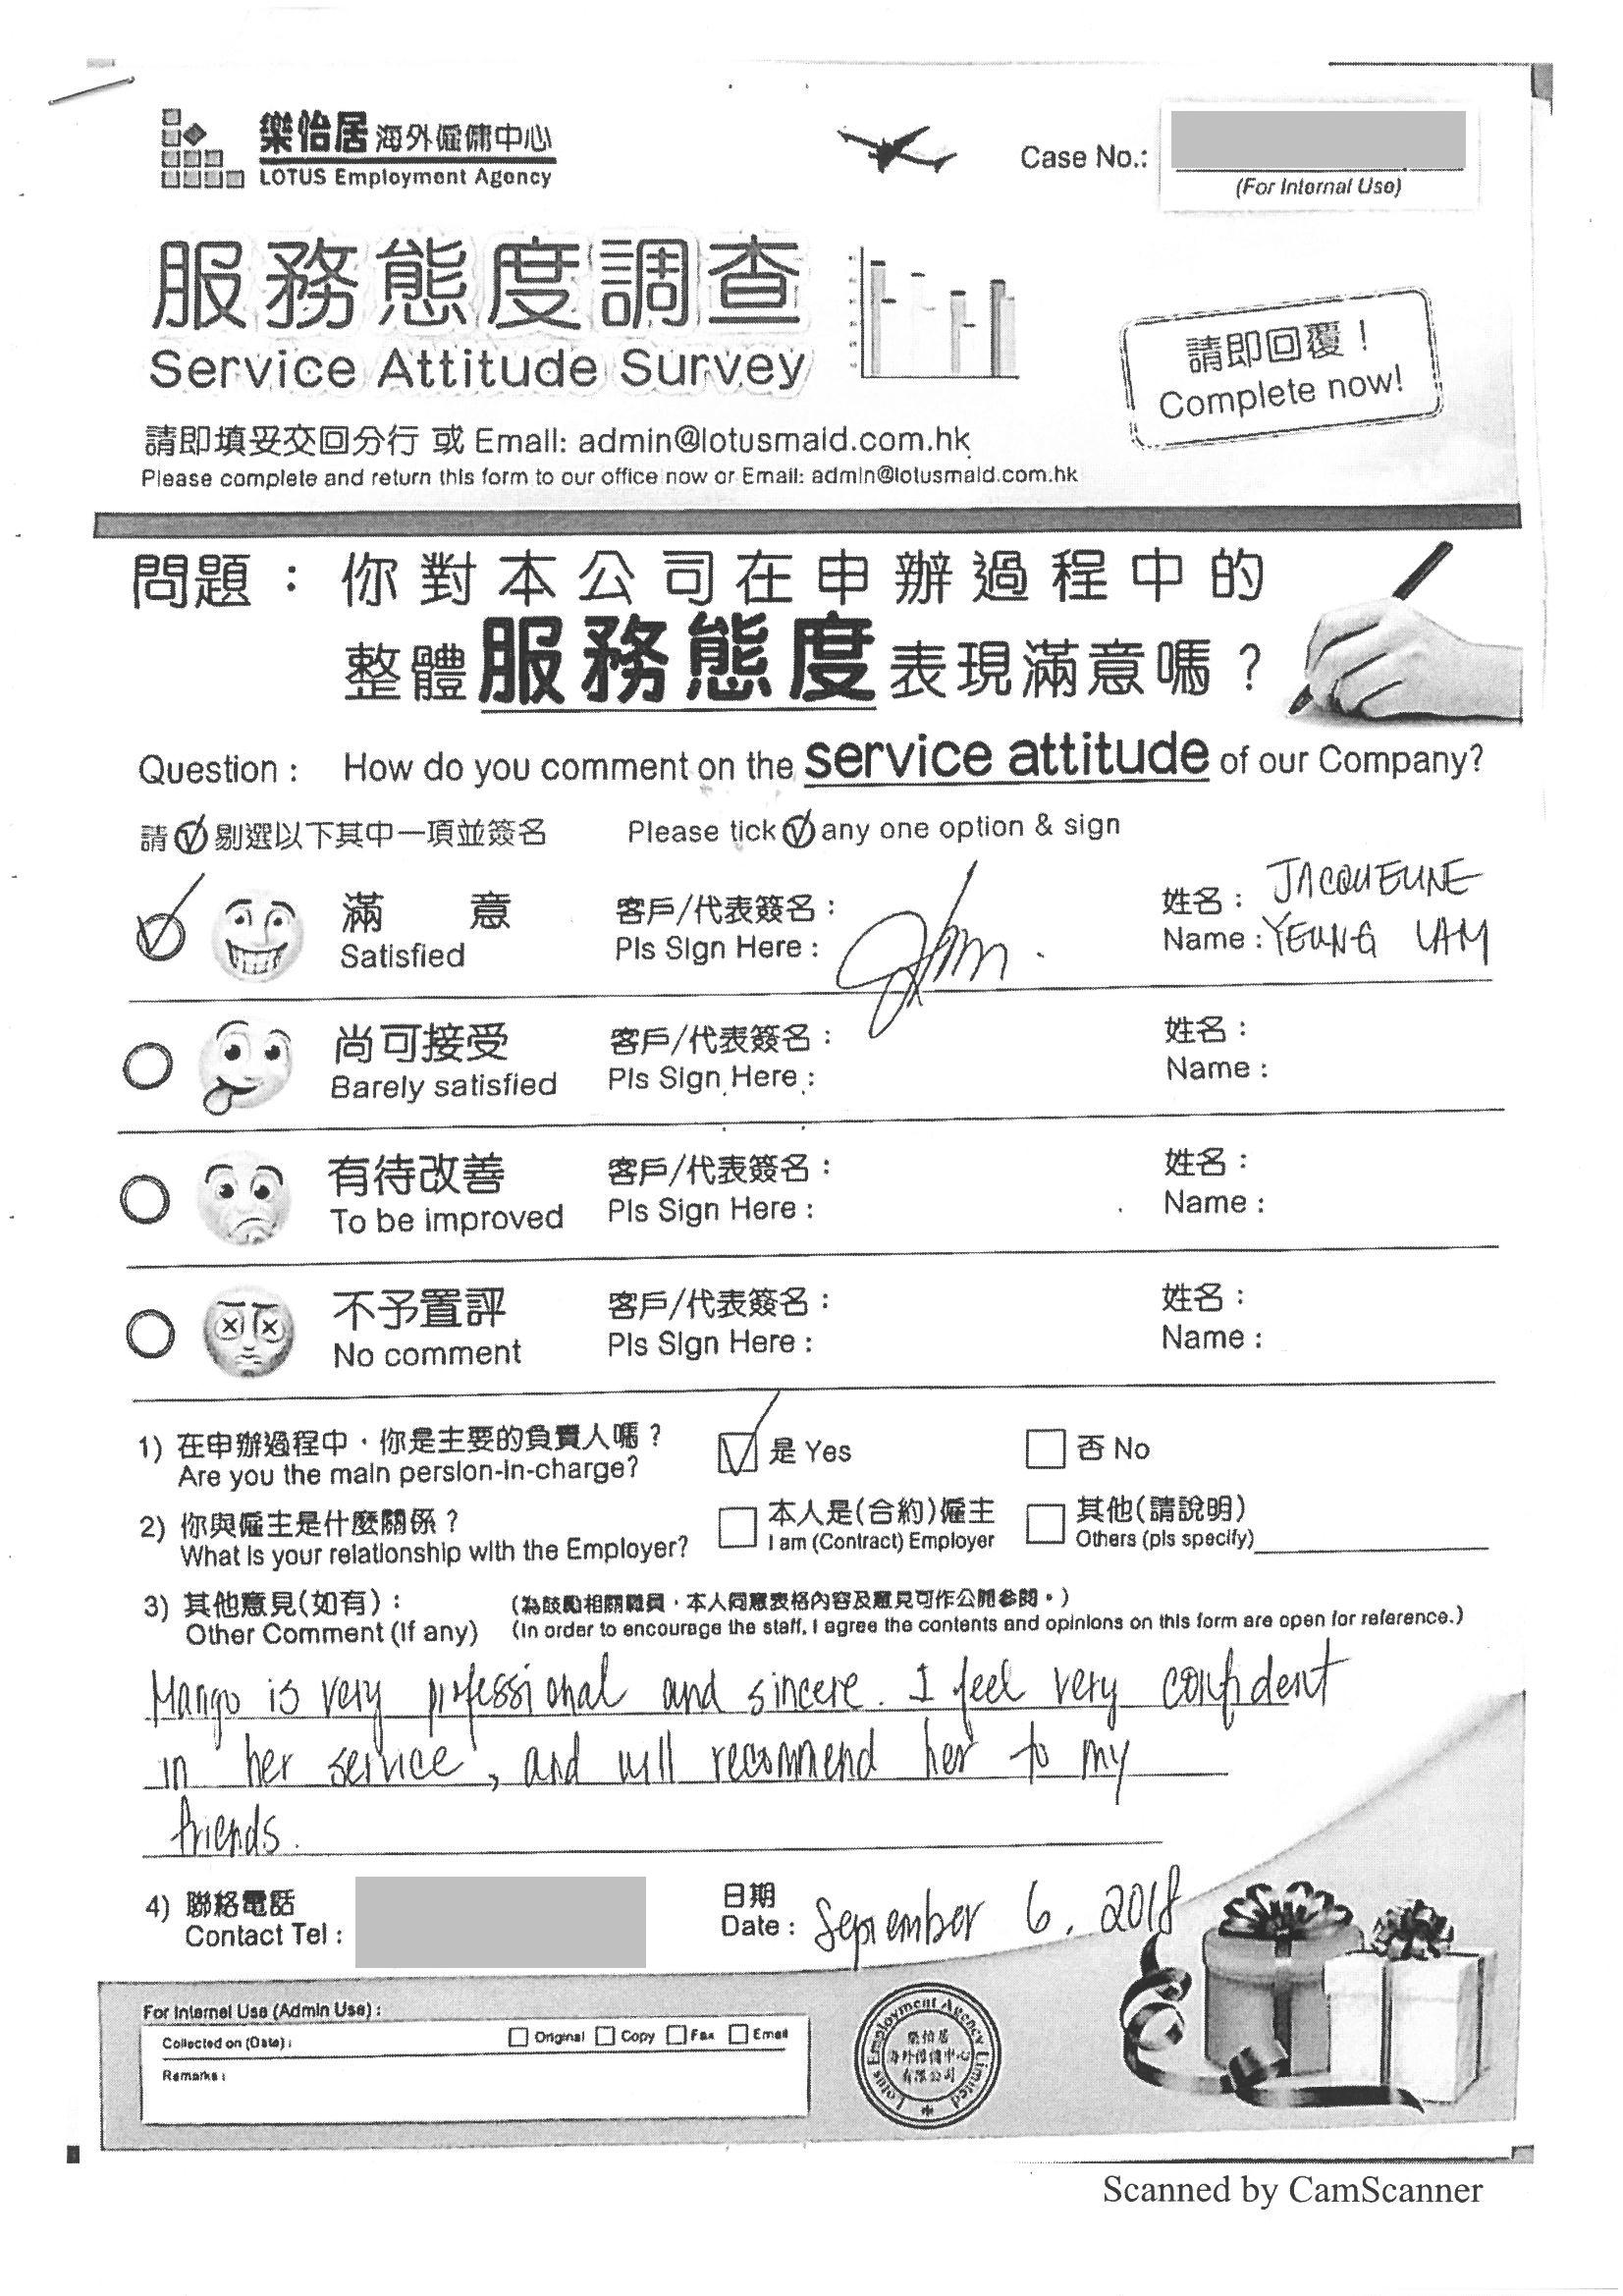 樂怡居海外僱傭中心
LOTUS Employment Agency
Case No.:
(For Internal Use)
服務態度調查
Service Attitude Survey
請即回覆！
Complete now!
請即填妥交回分行 或 Email: admin@lotusmaid.com.hk
Please complete and return this form to our office now or Email: admin@lotusmaid.com.hk
問題：你對本公司在申辦過程中的
整體服務態度表現滿意嗎？
Question : How do you comment on the service attitude of our Company?
請 剔選以下其中一項並簽名 Please tick any one option & sign
滿 意 客戶/代表簽名： 姓名： JACQUELINE
Satisfied Pls Sign Here : Name : YEUNG LAM
尚可接受 客戶/代表簽名： 姓名：
Barely satisfied Pls Sign Here : Name :
有待改善 客戶/代表簽名： 姓名：
To be improved Pls Sign Here : Name :
不予置評 客戶/代表簽名： 姓名：
No comment Pls Sign Here : Name :
1) 在申辦過程中，你是主要的負責人嗎？ 是 Yes 否 No
Are you the main persion-in-charge?
2) 你與僱主是什麼關係？ 本人是(合約)僱主 其他(請說明)
What is your relationship with the Employer? I am (Contract) Employer Others (pls specify)
3) 其他意見(如有)： (為鼓勵相關職員，本人同意表格內容及意見可作公開參閱。)
Other Comment (If any) (In order to encourage the staff, I agree the contents and opinions on this form are open for reference.)
Mango is very professional and sincere. I feel very confident
in her service, and will recommend her to my
friends.
4) 聯絡電話 日期
Contact Tel : Date : September 6, 2018
For Internel Use (Admin Use) :
Collected on (Date) : Original Copy Fax Email
Remarks :
Lotus Employment Agency Limited
樂怡居
海外僱傭中心
有限公司
Scanned by CamScanner